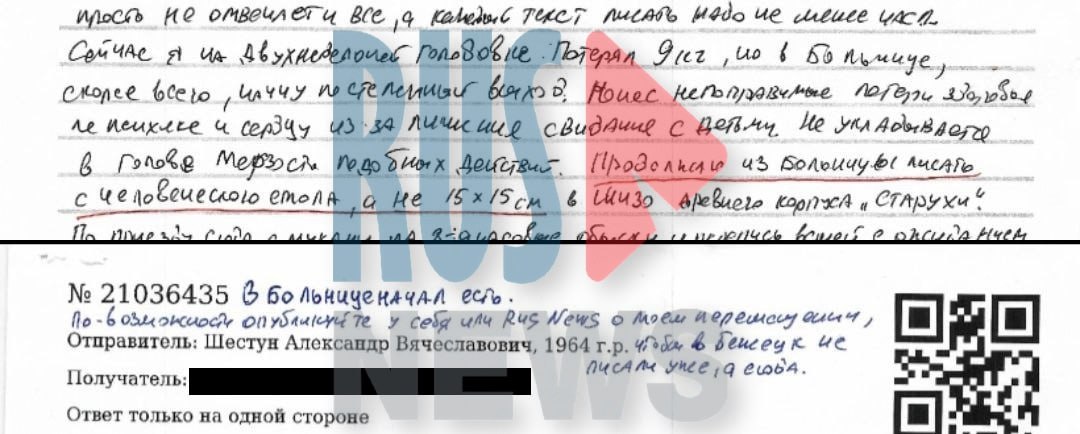 просто не отвеиляети все, а каждый текст писать надо не менее часа.
Сейчас я на двухнедельной голововке. Потерял 9 кг, но в больнице,
скорее всего, начну постепенный выход. Понес непоправимые потери здоровья
психике и сердцу из за лишения свидание с детьми. Не укладывается
в голове мерзость подобных действий. Продолжаю из больницы писать
с человеческого стола, а не 15х15см в шизо древнего корпуса „Старухи".
По приезду сюда обыски и перепись вещей с ожиданием
№ 21036435 В больнице начал есть.
По-возможности опубликуйте у себя или Rus News о моем перемещении,
Отправитель: Шестун Александр Вячеславович, 1964 г.р. чтобы в Бежецк не
писали уже, а сюда.
Получатель:
Ответ только на одной стороне
RUS
NEWS